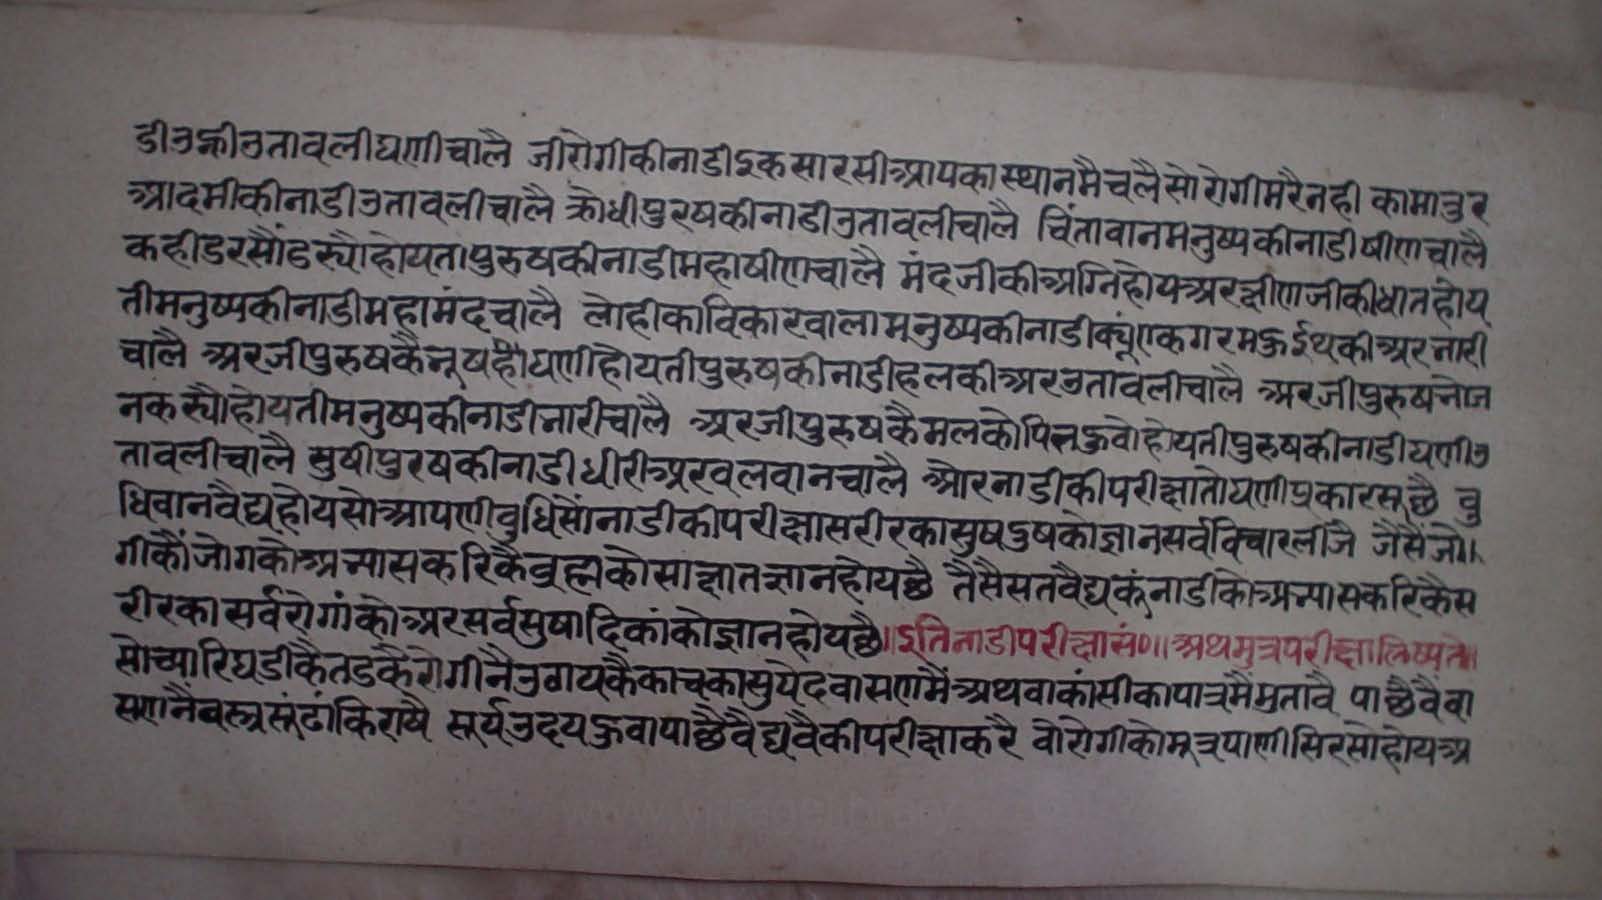 डीउन्हीउतावलीघणीचालै जीरोगीकीनाडीइकसारसीआपकास्थानमैचलैसोरोगीमरैनही कामातुर
आदमीकीनाडीउतावलीचालै क्रोधीपुरषकीनाडीउतावलीचालै चिंतावानमनुष्यकीनाडीषीणचालै
कहीडरसौंडस्यौहोयतापुरुषकीनाडीमहाषीणचालै मंदजीकीअग्निहोयअरक्षीणजीकीधातहोय
तीमनुष्यकीनाडीमहामंदचालै लोहीकाविकारवालामनुष्यकीनाडीक्यूंएकगरमऊईथकीअरनारी
चालै अरजीपुरुषकैनूषहौघणीहोयतीपुरुषकीनाडीहलकीअरउतावलीचालै अरजीपुरुषनोज
नकस्यौहोयतीमनुष्यकीनाडीनारीचालै अरजीपुरुषकैमलकोपित्तऊवोहोयतीपुरुषकीनाडीघणीउ
तावलीचालै सुषीपुरषकीनाडीधीरीअरवलवानचालै ओरनाडीकीपरीक्षातोघणीप्रकारसूछै वु
धिवानवैद्यहोयसोआपणीवुधिसैंनाडीकीपरीक्षासरीरकासुषदुषकोज्ञानसर्वविचारलीजै जैसैंजो
गीकौंजोगकोअभ्यासकरिकैव्रह्मकोसाक्षातज्ञानहोयछै तैसैसतवैद्यकूंनाडीकोअभ्यासकरिकैस
रीरकासर्वरोगांकोअरसर्वसुषादिकांकोज्ञानहोयछै॥इतिनाडीपरीक्षासं०॥अथमुत्रपरीक्षालिष्यते॥
सोच्यारिघडीकैतडकैरोगीनैउठायकैकाचकासुपेदवासणमैंअथवाकांसीकापात्रमैंमुतावै पाछैवैवा
सणनैवस्त्रसूंढांकिराषै सूर्यउदयऊवापाछैवैद्यवैकीपरीक्षाकरै वोरोगीकोमूत्रपाणीसिरसोहोयअ